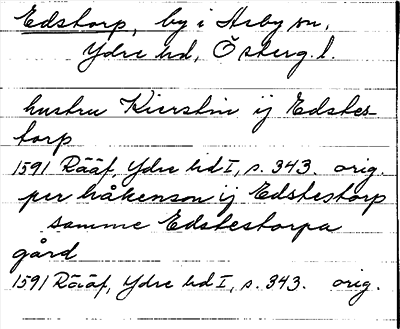 Edstorp, by i Asby sn,
Ydre hd, Österg.l.
hustru Kierstin ij Edstes-
torp
1591 Rääf, Ydre hd I, s. 343. orig.
per håkenson ij Edstestorp
samme Edstestorpa
gård
1591 Rääf, Ydre hd I, s. 343. orig.